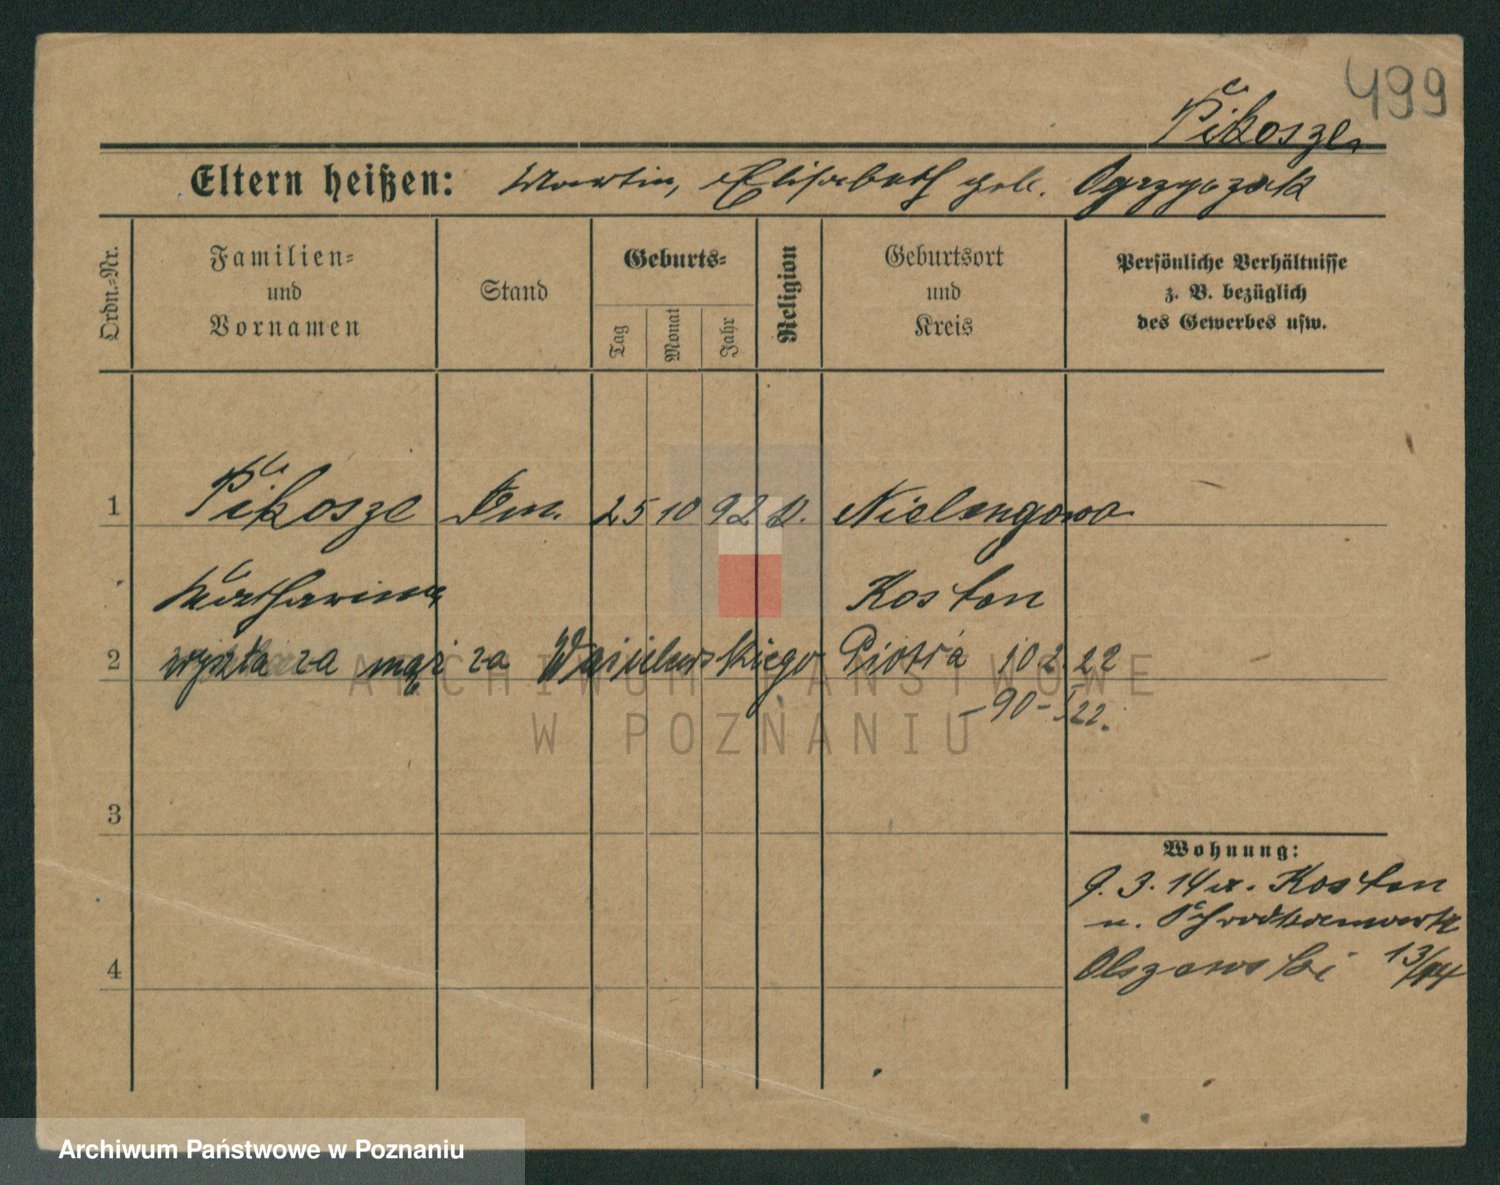 499
Pikosze
Eltern heißen: Martin, Elisabeth geb. Ogrzyczak
Ordn.-Nr.
Familien=
und
Vornamen
Stand
Geburts=
Tag
Monat
Jahr
Religion
Geburtsort
und
Kreis
Persönliche Verhältnisse
z. B. bezüglich
des Gewerbes usw.
1 Pikosze 25 10 92 Nielengowo
Katharina Kosten
2 wyszła za mąż za Piotra 10 2 22
-90- 22.
ARCHIWUM PAŃSTWOWE
W POZNANIU
3
Wohnung:
9. 3. 14 a. Kosten
n.
4 Olszewski 13/ 14
Archiwum Państwowe w Poznaniu